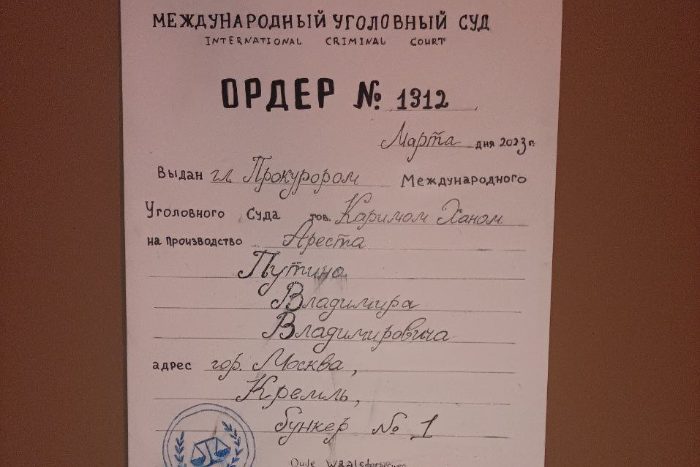 МЕЖДУНАРОДНЫЙ УГОЛОВНЫЙ СУД
INTERNATIONAL CRIMINAL COURT
ОРДЕР № 1312
Марта дня 2023 г.
Выдан гл. Прокурором Международного
Уголовного Суда тов. Каримом Ханом
на производство Ареста
Путина
Владимира
Владимировича
адрес гор. Москва,
Кремль,
бункер № 1
Oude Waalsdorperweg